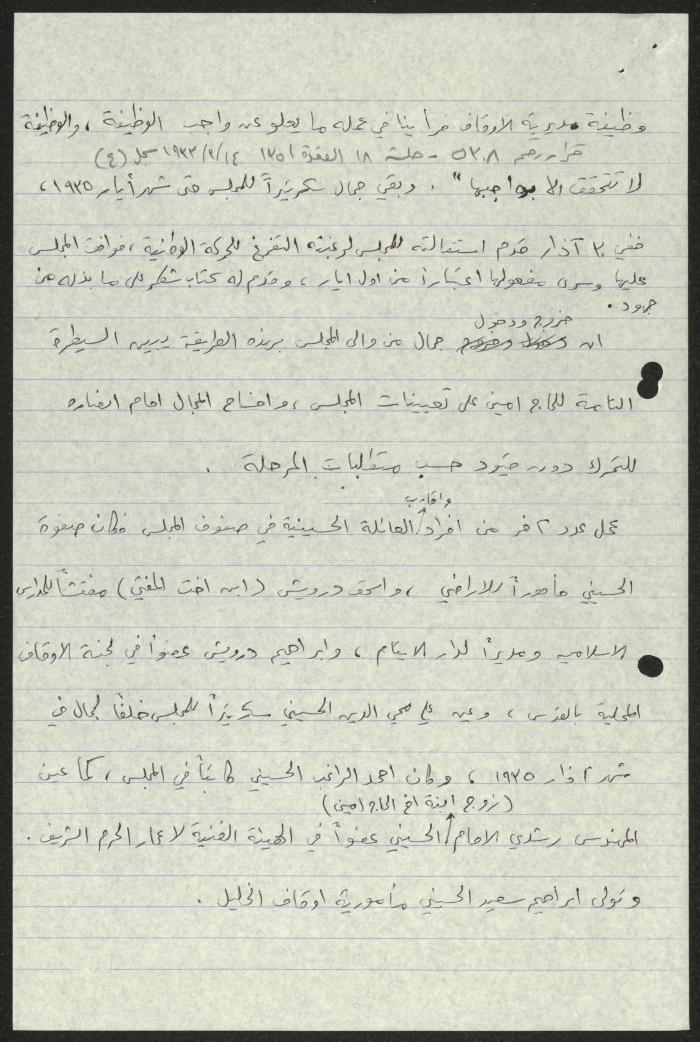 وظيفة مديرية الاوقاف فرأينا في عمله ما يعلو عن واجب الوظيفة ، والوظيفة
قرار رقم ٥٣٠٨ - جلسة ١٨ الفقرة ١٣٥١ ١٩٣٣/٢/١٤ سجل (٤)
لا تتحقق الا بواجبها" . وبقي جمال سكرتيراً للمجلس حتى شهر أيار ١٩٣٥،
ففي ٣٠ آذار قدم استقالته للمجلس لرغبته التفرغ للحركة الوطنية ، فوافق المجلس
عليها وسرى مفعولها اعتباراً من اول ايار ، وقدم له كتاب شكر على ما بذله من
جهود .
خروج ودخول
ان جمال من والى المجلس بهذه الطريقة يبين السيطرة
التامة للحاج امين على تعيينات المجلس ، وافساح المجال امام انصاره
للتحرك دون قيود حسب متطلبات المرحلة .
واقارب
عمل عدد آخر من افراد العائلة الحسينية في صفوف المجلس فكان صفوة
الحسيني مأموراً للاراضي ، واسحق درويش (ابن اخت المفتي) مفتشاً للمدارس
الاسلاميه ومديراً لدار الايتام ، وابراهيم درويش عضواً في لجنة الاوقاف
المحلية بالقدس ، وعين علي محي الدين الحسيني سكرتيراً للمجلس خلفاً لجمال في
شهر آذار ١٩٣٥ ، وكان احمد الراغب الحسيني كاتباً في المجلس ، كما عين
(زوج ابنة اخ الحاج امين)
المهندس رشدي الامام الحسيني عضواً في الهيئة الفنية لاعمار الحرم الشريف .
وتولى ابراهيم سعيد الحسيني مأمورية اوقاف الخليل .